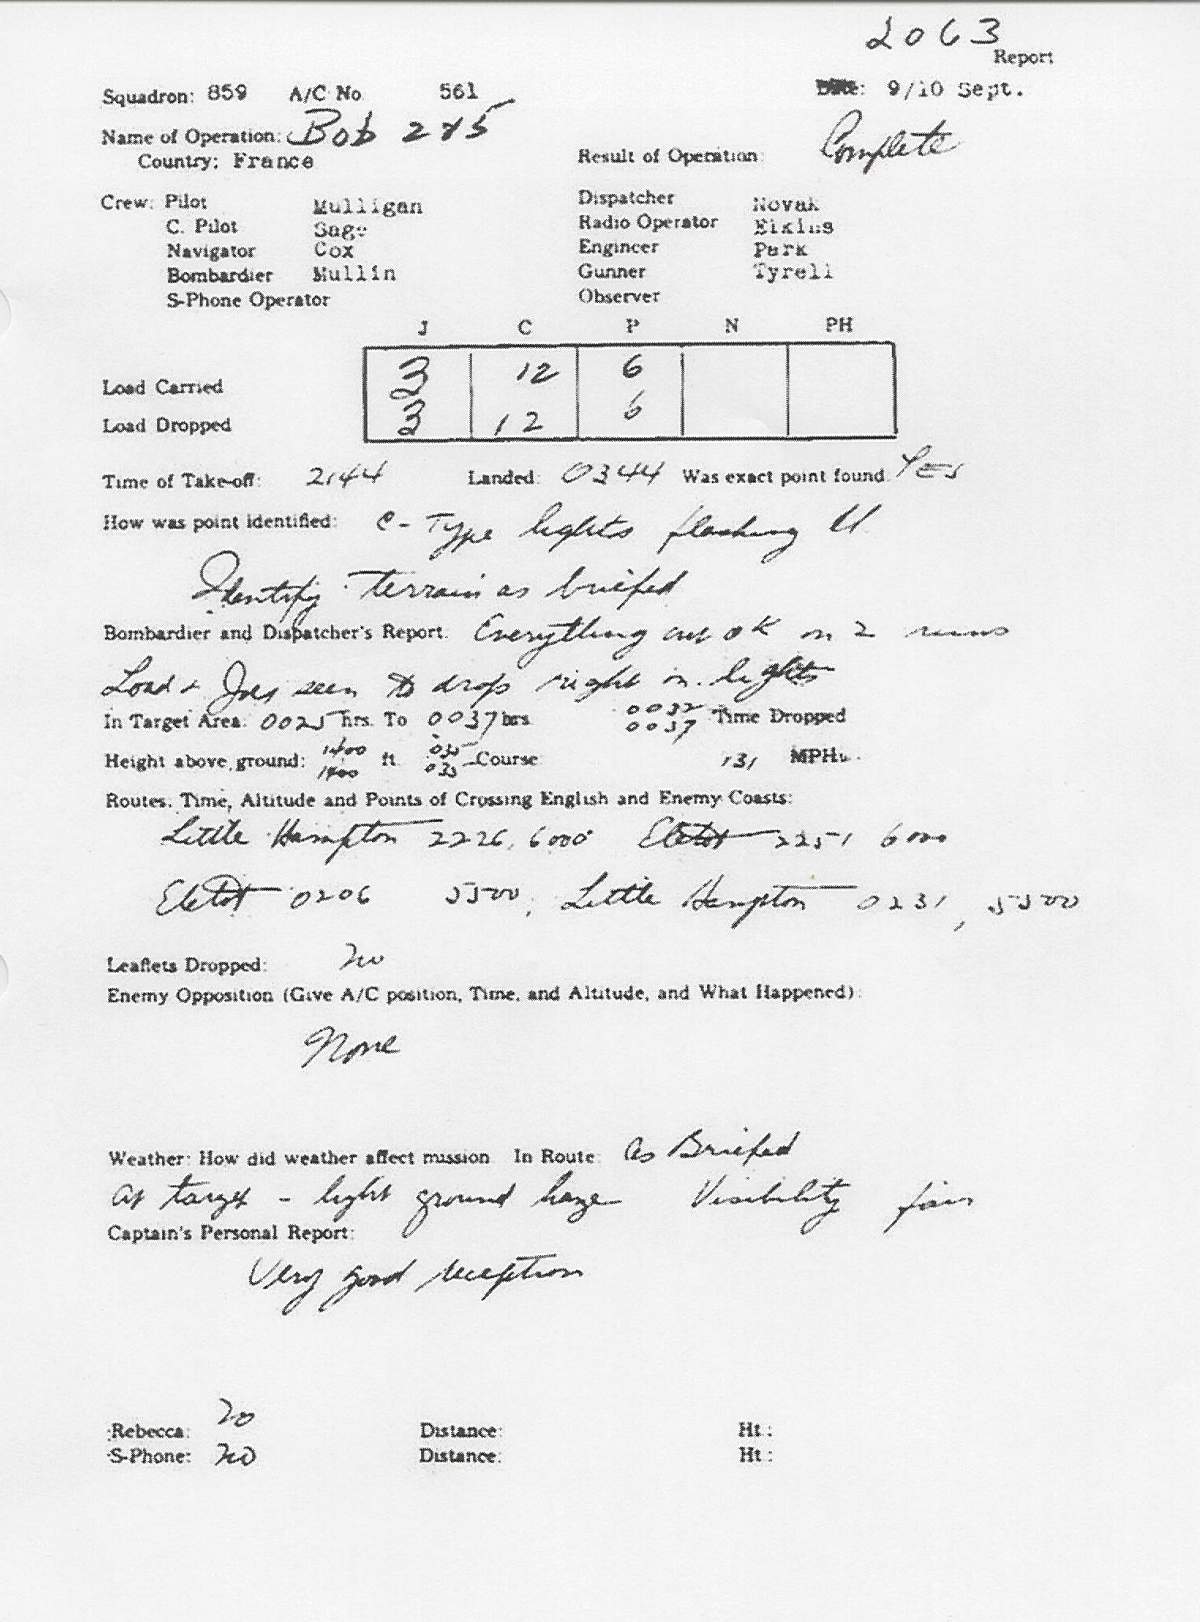 2063
Report
Squadron: 859 A/C No. 561 Date: 9/10 Sept.
Name of Operation: Bob 245
Country: France Result of Operation: Complete
Crew: Pilot Mulligan Dispatcher Novak
C. Pilot Sage Radio Operator Elkins
Navigator Cox Engineer Park
Bombardier Mullin Gunner Tyrell
S-Phone Operator Observer
J C P N PH
Load Carried 3 12 6
Load Dropped 3 12 6
Time of Take-off: 2144 Landed: 0344 Was exact point found: YES
How was point identified: C-Type lights flashing U.
Identify terrain as briefed
Bombardier and Dispatcher's Report: Everything out ok on 2 runs
Load & Joes seen to drop right on lights
In Target Area: 0025 hrs. To 0037 hrs. 0032 0037 Time Dropped
Height above ground: 1400 1400 ft. 035 035 Course 131 MPH
Routes: Time, Altitude and Points of Crossing English and Enemy Coasts:
Little Hampton 2226, 6000 Eletot 2251 6000
Eletot 0206 5500, Little Hampton 0231, 5500
Leaflets Dropped: no
Enemy Opposition (Give A/C position, Time, and Altitude, and What Happened):
None
Weather: How did weather affect mission. In Route: as Briefed
At target - light ground haze Visibility fair
Captain's Personal Report:
Very good reception
Rebecca: no Distance: Ht.:
S-Phone: no Distance: Ht.: